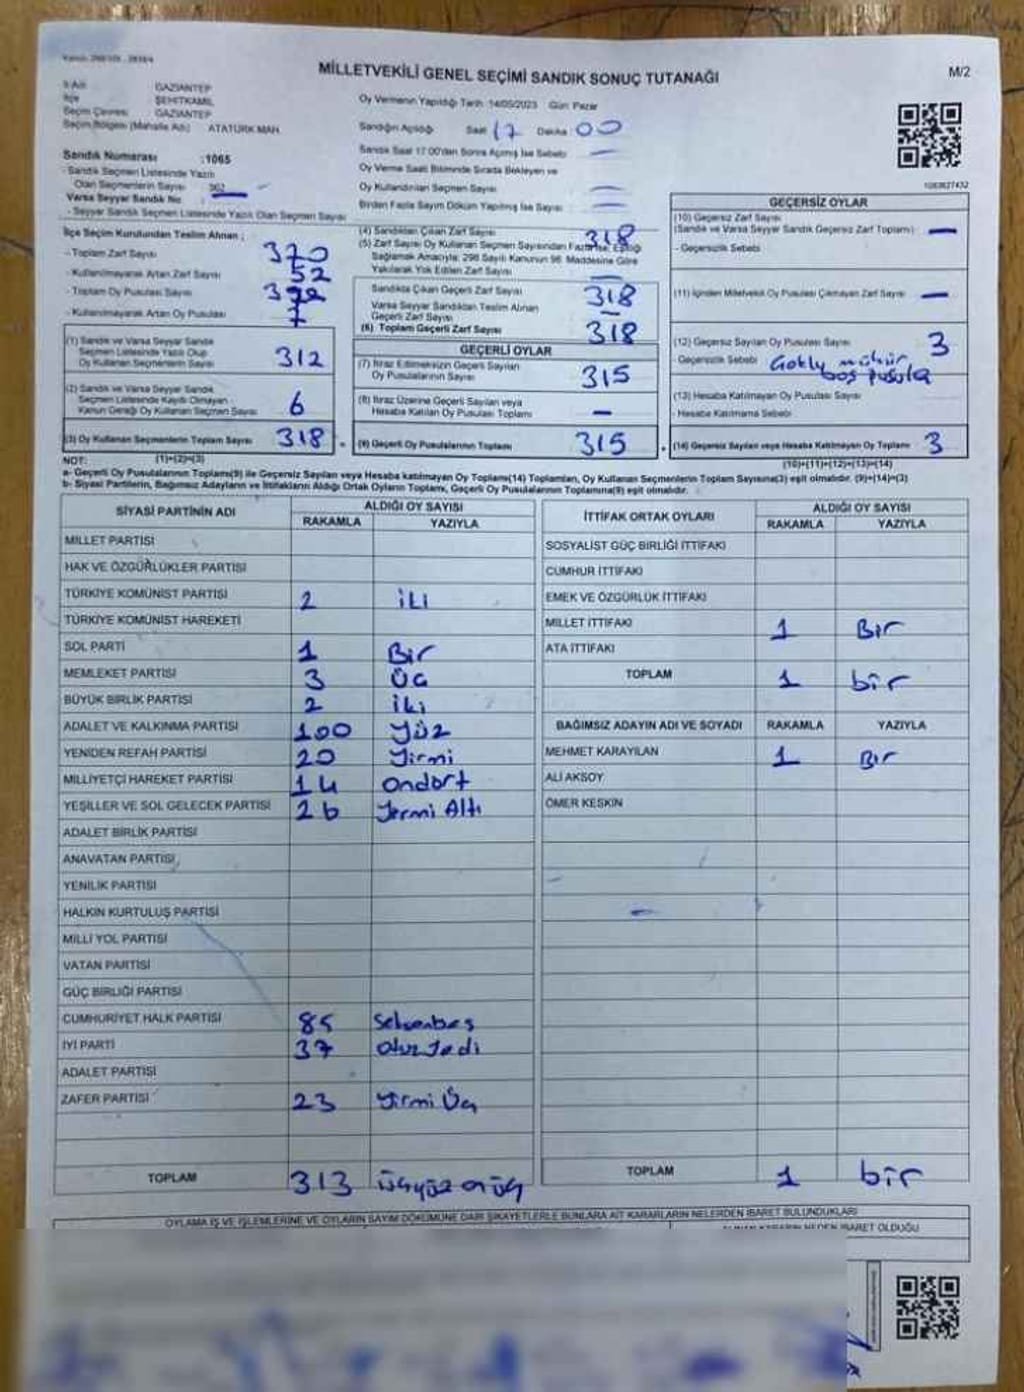 MİLLETVEKİLİ GENEL SEÇİMİ SANDIK SONUÇ TUTANAĞI
M/2
İlçe ŞEHİTKAMİL
GAZİANTEP
Seçim Çevresi GAZİANTEP
Seçim Bölgesi (Mahalle Adı) ATATÜRK MAH.
Sandık Numarası :1065
- Sandık Seçmen Listesinde Yazılı
Olan Seçmenlerin Sayısı
Varsa Seyyar Sandık No
- Seyyar Sandık Seçmen Listesinde Yazılı Olan Seçmen Sayısı
Oy Vermenin Yapıldığı Tarih 14/05/2023 Gün Pazar
Sandığın Açıldığı Saat 17 Dakika 00
Sandık Saat 17.00'den Sonra Açılmış İse Sebebi —
Oy Verme Saati Bitiminde Sırada Bekleyen ve
Oy Kullandırılan Seçmen Sayısı —
Birden Fazla Sayım Döküm Yapılmış İse Sayısı —
1063627432
İlçe Seçim Kurulundan Teslim Alınan ;
- Toplam Zarf Sayısı 370
- Kullanılmayarak Artan Zarf Sayısı 52
- Toplam Oy Pusulası Sayısı
- Kullanılmayarak Artan Oy Pusulası 7
(1) Sandık ve Varsa Seyyar Sandık
Seçmen Listesinde Yazılı Olup
Oy Kullanan Seçmenlerin Sayısı 312
(2) Sandık ve Varsa Seyyar Sandık
Seçmen Listesinde Kayıtlı Olmayan
Kanun Gereği Oy Kullanan Seçmen Sayısı 6
(3) Oy Kullanan Seçmenlerin Toplam Sayısı 318
(1)+(2)=(3)
(4) Sandıktan Çıkan Zarf Sayısı 318
(5) Zarf Sayısı Oy Kullanan Seçmen Sayısından Fazla İse, Eşitliği
Sağlamak Amacıyla; 298 Sayılı Kanunun 98. Maddesine Göre
Yakılarak Yok Edilen Zarf Sayısı —
Sandıkta Çıkan Geçerli Zarf Sayısı 318
Varsa Seyyar Sandıktan Teslim Alınan
Geçerli Zarf Sayısı —
(6) Toplam Geçerli Zarf Sayısı 318
GEÇERLİ OYLAR
(7) İtiraz Edilmeksizin Geçerli Sayılan
Oy Pusulalarının Sayısı 315
(8) İtiraz Üzerine Geçerli Sayılan veya
Hesaba Katılan Oy Pusulası Toplamı —
(9) Geçerli Oy Pusulalarının Toplamı 315
GEÇERSİZ OYLAR
(10) Geçersiz Zarf Sayısı
(Sandık ve Varsa Seyyar Sandık Geçersiz Zarf Toplamı) —
- Geçersizlik Sebebi
(11) İçinden Milletvekili Oy Pusulası Çıkmayan Zarf Sayısı —
(12) Geçersiz Sayılan Oy Pusulası Sayısı 3
Geçersizlik Sebebi mühür
boş pusula
(13) Hesaba Katılmayan Oy Pusulası Sayısı
- Hesaba Katılmama Sebebi
(14) Geçersiz Sayılan veya Hesaba Katılmayan Oy Toplamı 3
(10)+(11)+(12)+(13)=(14)
NOT:
a- Geçerli Oy Pusulalarının Toplamı(9) ile Geçersiz Sayılan veya Hesaba katılmayan Oy Toplamı(14) Toplamları, Oy Kullanan Seçmenlerin Toplam Sayısına(3) eşit olmalıdır. (9)+(14)=(3)
b- Siyasi Partilerin, Bağımsız Adayların ve İttifakların Aldığı Ortak Oyların Toplamı, Geçerli Oy Pusulalarının Toplamına(9) eşit olmalıdır.
SİYASİ PARTİNİN ADI ALDIĞI OY SAYISI
RAKAMLA YAZIYLA
MİLLET PARTİSİ
HAK VE ÖZGÜRLÜKLER PARTİSİ
TÜRKİYE KOMÜNİST PARTİSİ 2 iki
TÜRKİYE KOMÜNİST HAREKETİ
SOL PARTİ 1 Bir
MEMLEKET PARTİSİ 3 Üç
BÜYÜK BİRLİK PARTİSİ 2 iki
ADALET VE KALKINMA PARTİSİ 100 Yüz
YENİDEN REFAH PARTİSİ 20 Yirmi
MİLLİYETÇİ HAREKET PARTİSİ 14 ondört
YEŞİLLER VE SOL GELECEK PARTİSİ 26 Yermi Altı
ADALET BİRLİK PARTİSİ
ANAVATAN PARTİSİ
YENİLİK PARTİSİ
HALKIN KURTULUŞ PARTİSİ
MİLLİ YOL PARTİSİ
VATAN PARTİSİ
GÜÇ BİRLİĞİ PARTİSİ
CUMHURİYET HALK PARTİSİ 85 Seksenbeş
İYİ PARTİ 37 otuz yedi
ADALET PARTİSİ
ZAFER PARTİSİ 23 Yirmi Üç
TOPLAM 313 üçyüz onüç
İTTİFAK ORTAK OYLARI ALDIĞI OY SAYISI
RAKAMLA YAZIYLA
SOSYALİST GÜÇ BİRLİĞİ İTTİFAKI
CUMHUR İTTİFAKI
EMEK VE ÖZGÜRLÜK İTTİFAKI
MİLLET İTTİFAKI 1 Bir
ATA İTTİFAKI
TOPLAM 1 bir
BAĞIMSIZ ADAYIN ADI VE SOYADI RAKAMLA YAZIYLA
MEHMET KARAYILAN 1 Bir
ALİ AKSOY
ÖMER KESKİN
TOPLAM 1 bir
OYLAMA İŞ VE İŞLEMLERİNE VE OYLARIN SAYIM DÖKÜMÜNE DAİR ŞİKAYETLERLE BUNLARA AİT KARARLARIN NELERDEN İBARET BULUNDUKLARI
ALINAN KARARIN NEDEN İBARET OLDUĞU